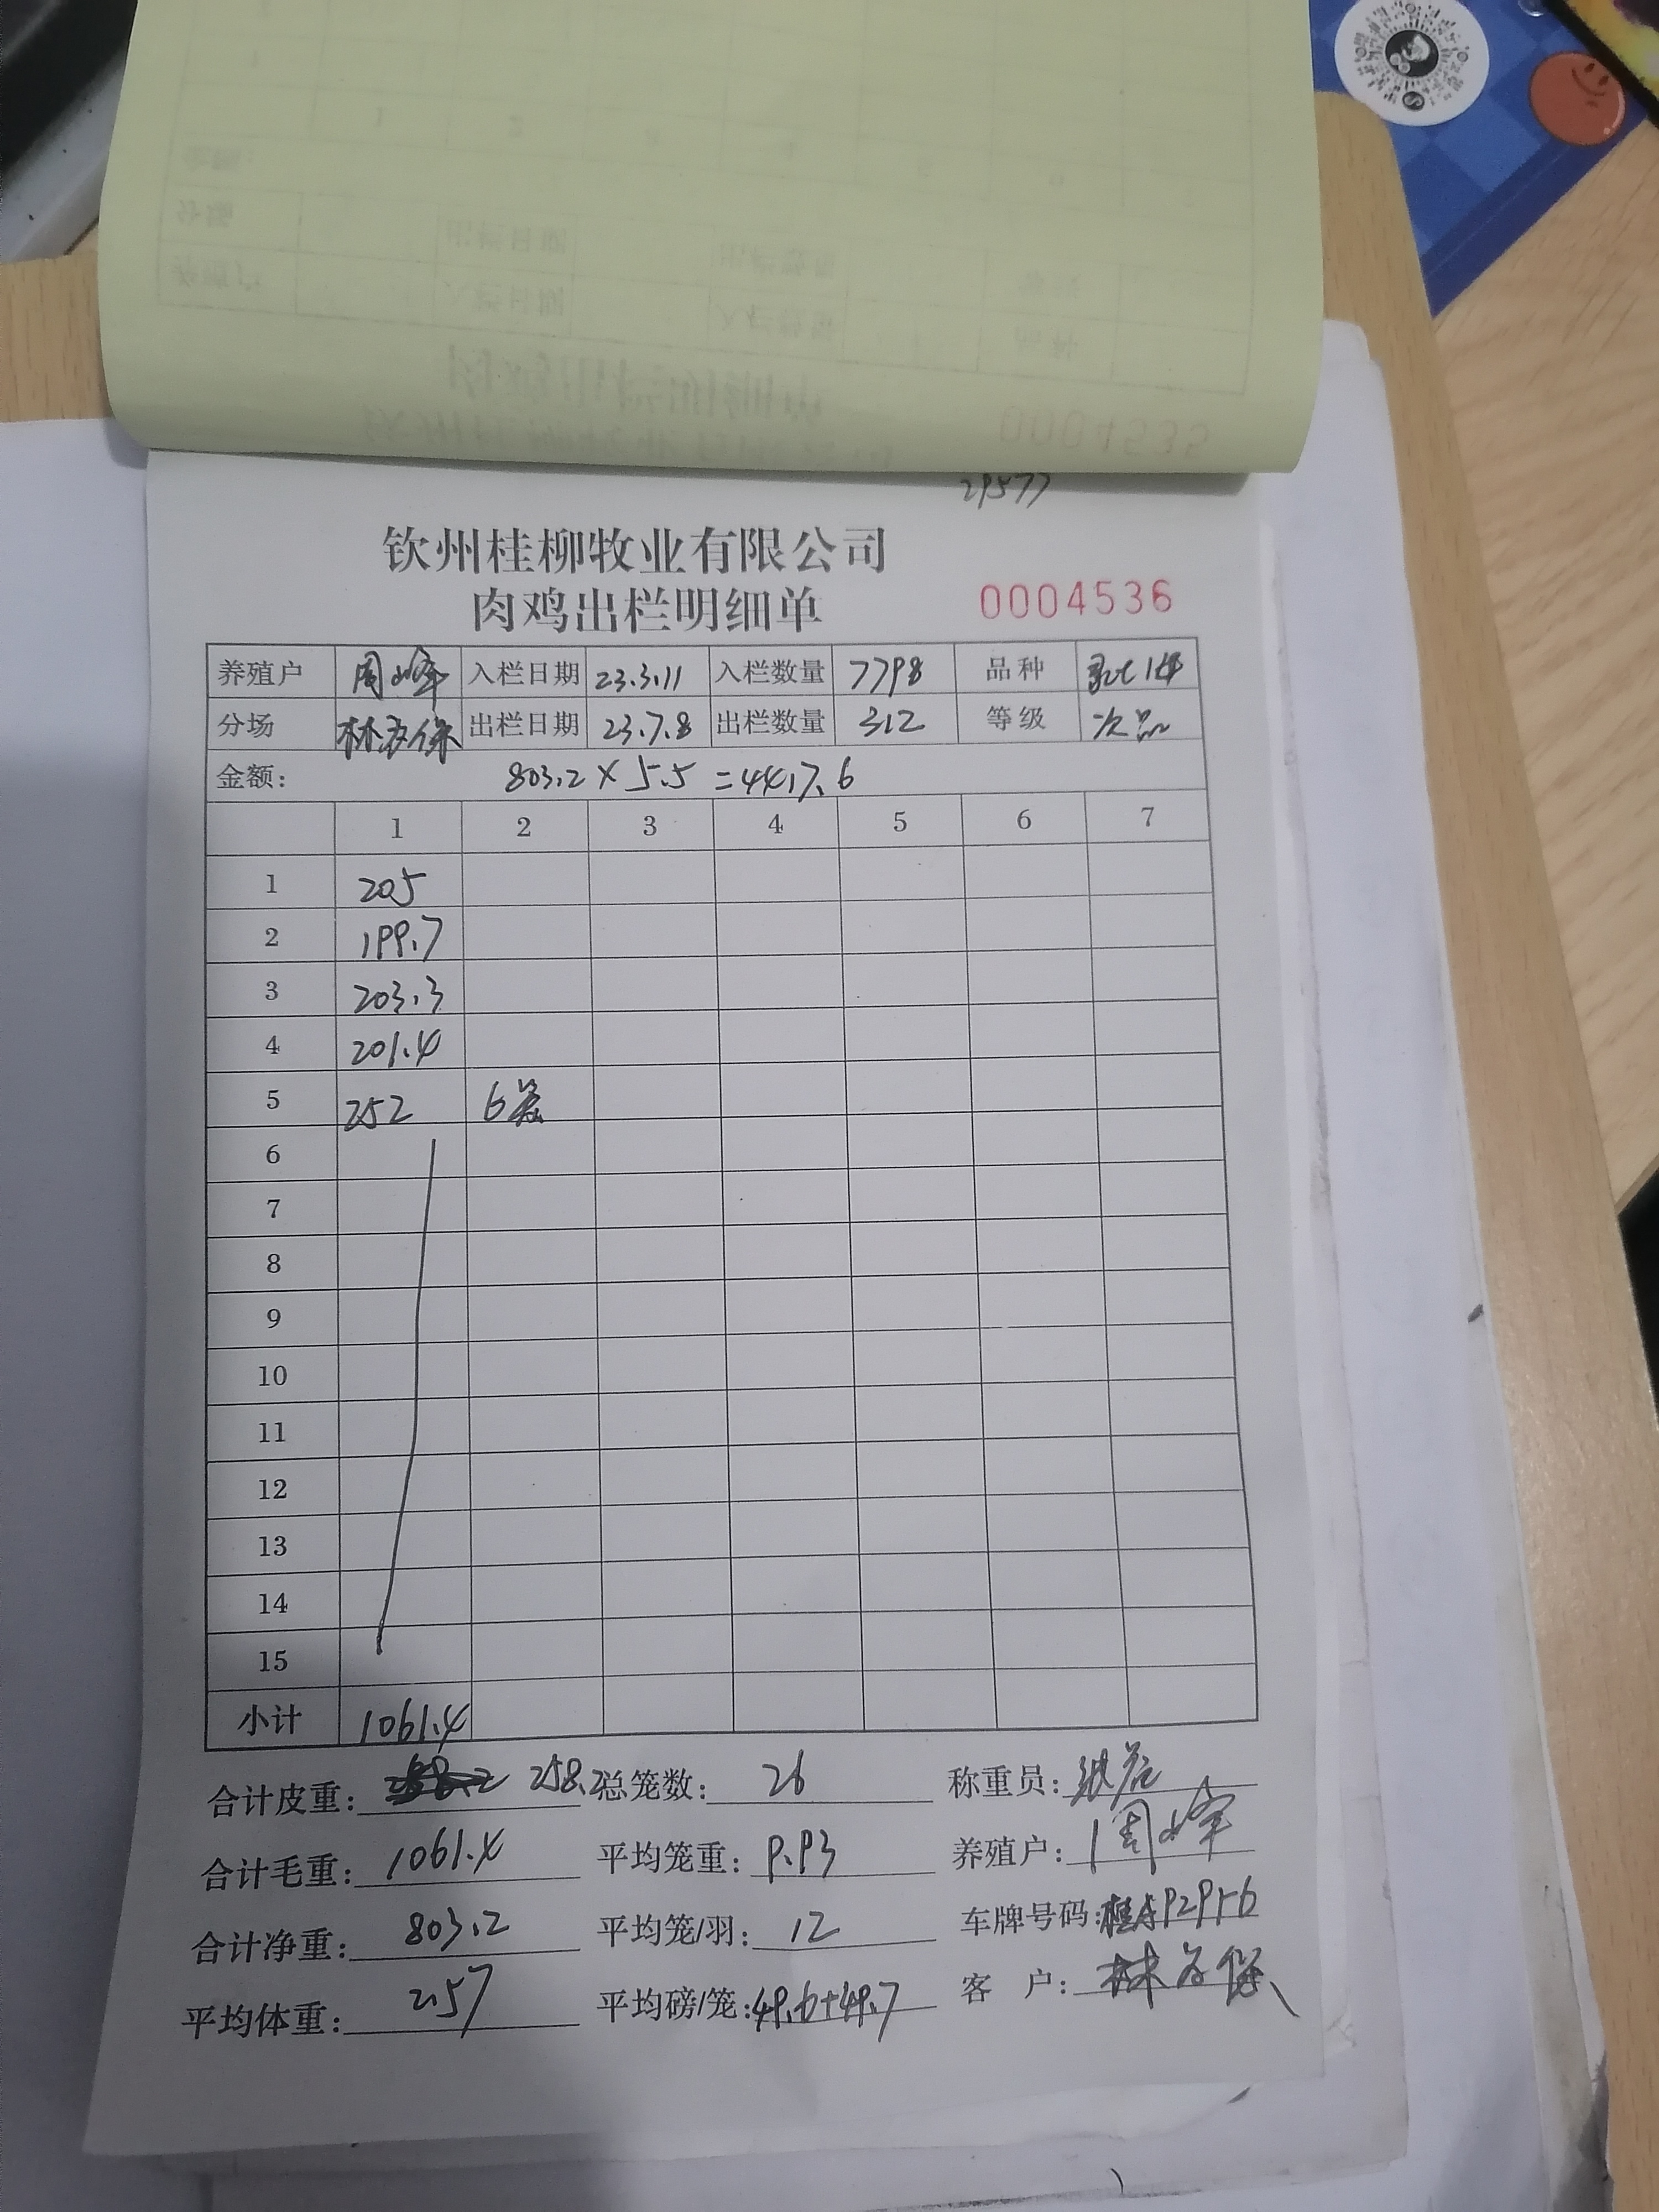 29577
钦州桂柳牧业有限公司
肉鸡出栏明细单 0004536
养殖户 周峰 入栏日期 23.3.11 入栏数量 7798 品种
分场 出栏日期 23.7.8 出栏数量 312 等级 次品
金额: 803.2×5.5=4417.6
1 2 3 4 5 6 7
1 205
2 199.7
3 203.3
4 201.4
5 252 6笼
6
7
8
9
10
11
12
13
14
15
小计 1061.4
合计皮重: 258.2 总笼数: 26 称重员:
合计毛重: 1061.4 平均笼重: 9.93 养殖户: 周峰
合计净重: 803.2 平均笼/羽: 12 车牌号码:
平均体重: 2.57 平均磅/笼: 49.6+49.7 客 户: